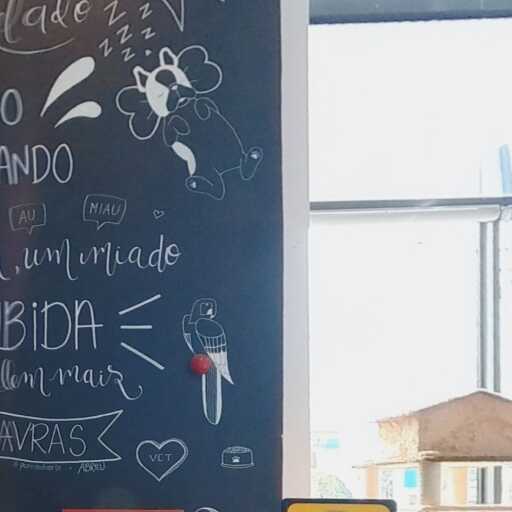 lado zzz
zzz
O
ANDO
AU MIAU
, um miado
BIDA
lem mais
AVRAS
ABREU
VCT